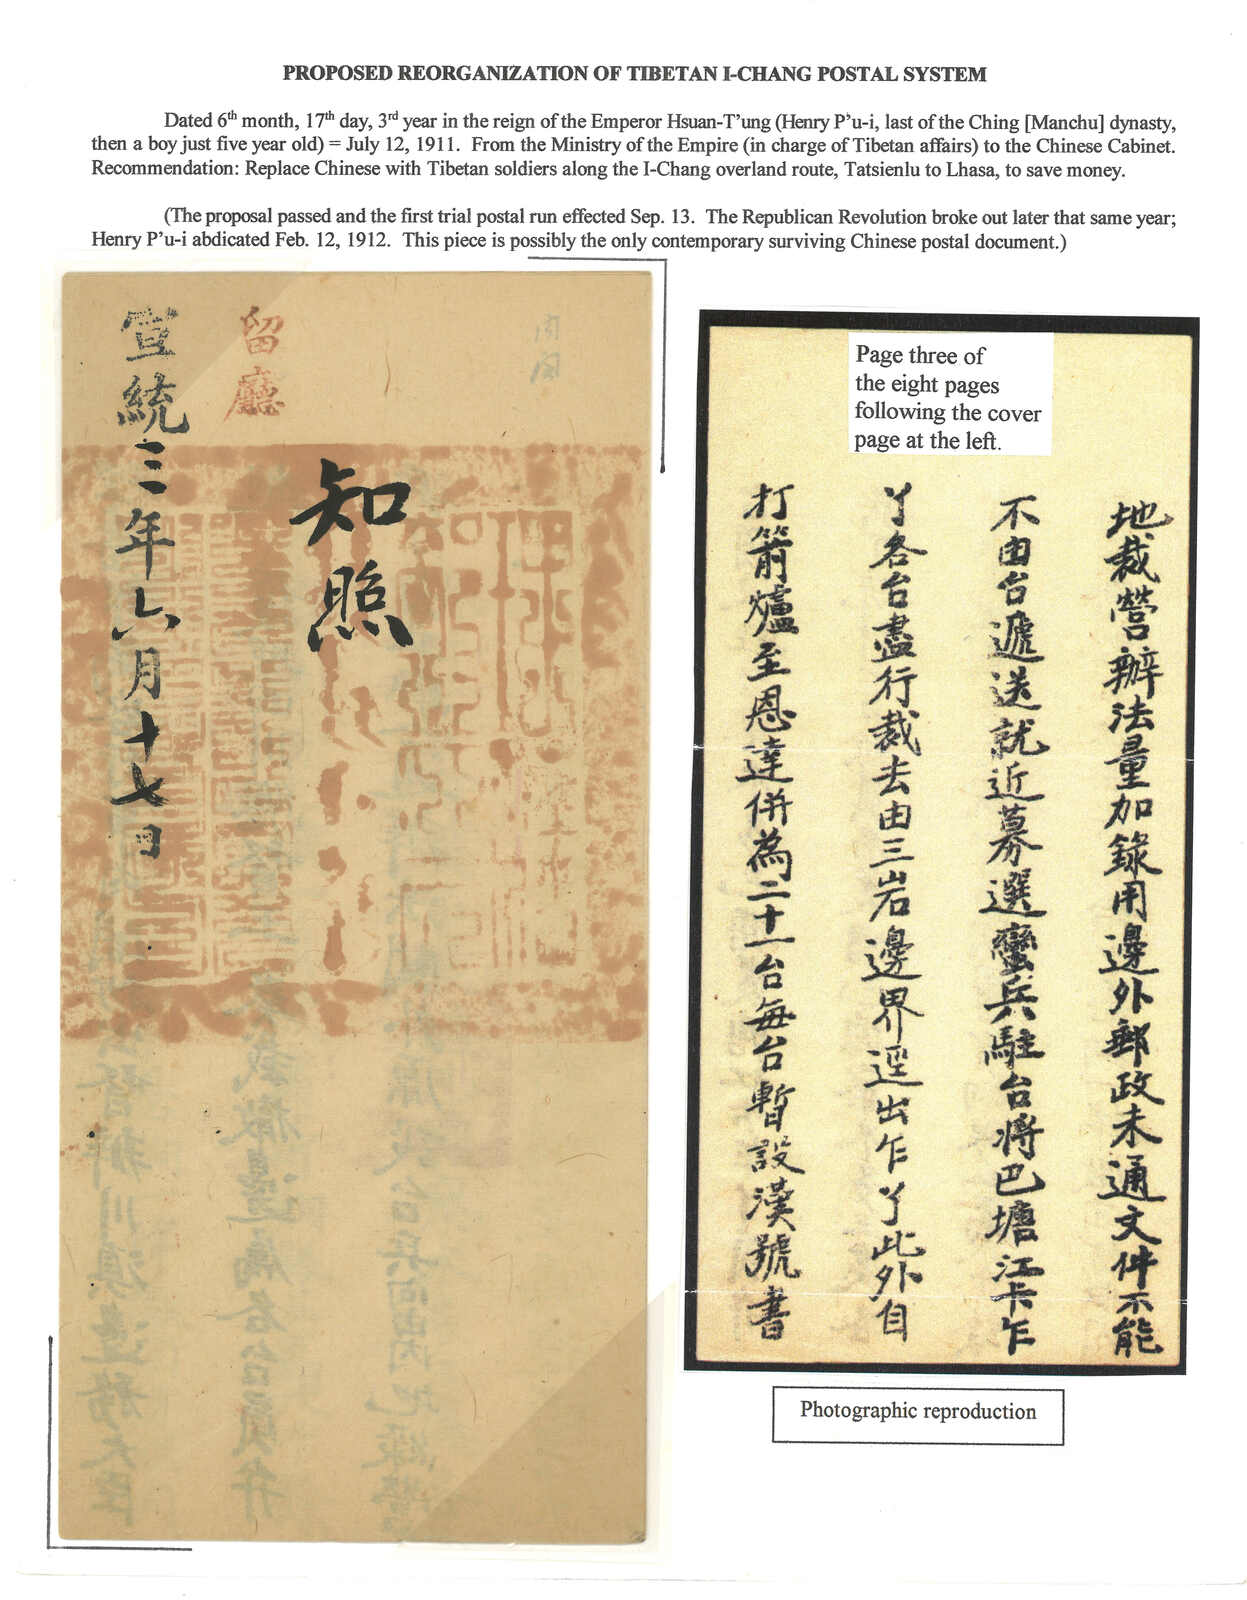 PROPOSED REORGANIZATION OF TIBETAN I-CHANG POSTAL SYSTEM
Dated 6th month, 17th day, 3rd year in the reign of the Emperor Hsuan-T'ung (Henry P'u-i, last of the Ching [Manchu] dynasty,
then a boy just five year old) = July 12, 1911. From the Ministry of the Empire (in charge of Tibetan affairs) to the Chinese Cabinet.
Recommendation: Replace Chinese with Tibetan soldiers along the I-Chang overland route, Tatsienlu to Lhasa, to save money.
(The proposal passed and the first trial postal run effected Sep. 13. The Republican Revolution broke out later that same year;
Henry P'u-i abdicated Feb. 12, 1912. This piece is possibly the only contemporary surviving Chinese postal document.)
知照
留廳
宣統三年六月十七日
Page three of
the eight pages
following the cover
page at the left.
地裁營辦法量加錄用邊外郵政未通文件不能
不由台遞送就近募選蠻兵駐台將巴塘江卡乍
丫各台盡行裁去由三岩邊界逕出乍丫此外自
打箭爐至恩達併為二十一台每台暫設漢號書
Photographic reproduction